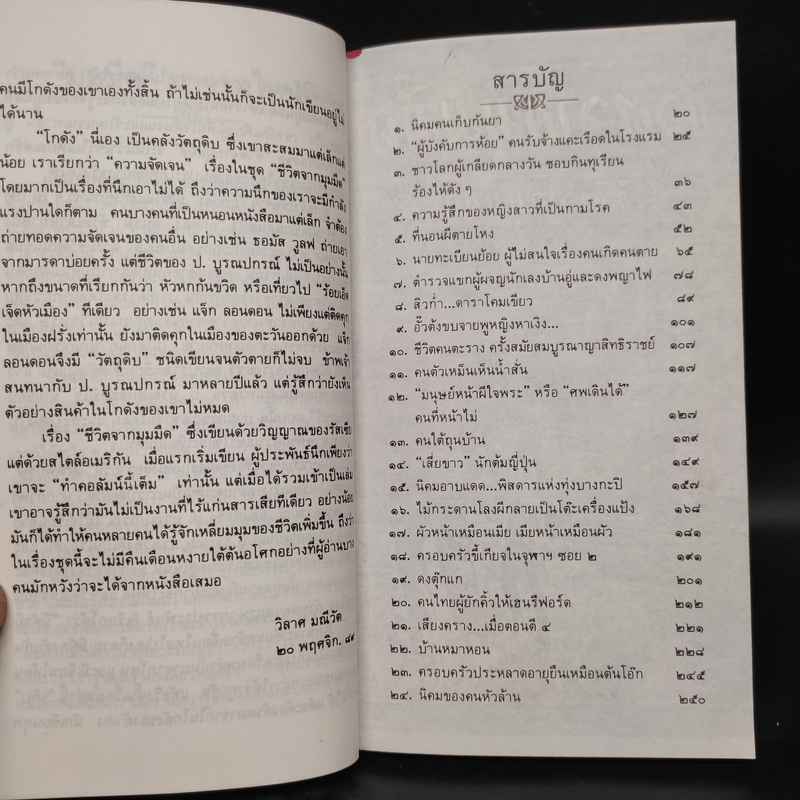 คนมีโกดังของเขาเองทั้งสิ้น ถ้าไม่เช่นนั้นก็จะเป็นนักเขียนอยู่ไม่
ได้นาน
“โกดัง” นี่เอง เป็นคลังวัตถุดิบ ซึ่งเขาสะสมมาแต่เล็กแต่
น้อย เราเรียกว่า “ความจัดเจน” เรื่องในชุด “ชีวิตจากมุมมืด”
โดยมากเป็นเรื่องที่นึกเอาไม่ได้ ถึงว่าความนึกของเราจะมีกำลัง
แรงปานใดก็ตาม คนบางคนที่เป็นหนอนหนังสือมาแต่เล็ก จำต้อง
ถ่ายทอดความจัดเจนของคนอื่น อย่างเช่น ธอมัส วูลฟ ถ่ายเอา
จากมารดาบ่อยครั้ง แต่ชีวิตของ ป. บูรณปกรณ์ ไม่เป็นอย่างนั้น
หากถึงขนาดที่เรียกกันว่า หัวหกก้นขวิด หรือเที่ยวไป “ร้อยเอ็ด
เจ็ดหัวเมือง” ทีเดียว อย่างเช่น แจ็ก ลอนดอน ไม่เพียงแต่ติดคุก
ในเมืองฝรั่งเท่านั้น ยังมาติดคุกในเมืองของตะวันออกด้วย แจ็ก
ลอนดอนจึงมี “วัตถุดิบ” ชนิดเขียนจนตัวตายก็ไม่จบ ข้าพเจ้า
สนทนากับ ป. บูรณปกรณ์ มาหลายปีแล้ว แต่รู้สึกว่ายังเห็น
ตัวอย่างสินค้าในโกดังของเขาไม่หมด
เรื่อง “ชีวิตจากมุมมืด” ซึ่งเขียนด้วยวิญญาณของรัสเซีย
แต่ด้วยสไตล์อเมริกัน เมื่อแรกเริ่มเขียน ผู้ประพันธ์นึกเพียงว่า
เขาจะ “ทำคอลัมน์นี้เต็ม” เท่านั้น แต่เมื่อได้รวมเข้าเป็นเล่ม
เขาอาจรู้สึกว่ามันไม่เป็นงานที่ไร้แก่นสารเสียทีเดียว อย่างน้อย
มันก็ได้ทำให้คนหลายคนได้รู้จักเหลี่ยมมุมของชีวิตเพิ่มขึ้น ถึงว่า
ในเรื่องชุดนี้จะไม่มีคืนเดือนหงายใต้ต้นอโศกอย่างที่ผู้อ่านบาง
คนมักหวังว่าจะได้จากหนังสือเสมอ
วิลาศ มณีวัต
๒๐ พฤศจิก. ๘๙
สารบัญ
๑. นิคมคนเก็บกันยา ๒๐
๒. “ผู้บังคับการห้อย” คนรับจ้างแคะเรือดในโรงแรม ๒๕
๓. ชาวโลกผู้เกลียดกลางวัน ชอบกินทุเรียน
ร้องไห้ดัง ๆ ๓๖
๔. ความรู้สึกของหญิงสาวที่เป็นกามโรค ๔๓
๕. ที่นอนผีตายโหง ๕๒
๖. นายทะเบียนย้อย ผู้ไม่สนใจเรื่องคนเกิดคนตาย ๖๕
๗. ตำรวจแขกผู้ผจญนักเลงบ้านอู่และดงพญาไฟ ๗๘
๘. สิวก่ำ...ดาราโคมเขียว ๘๙
๙. อั๊วตั้งขบจายพูหญิงหาเงิง... ๑๐๑
๑๐. ชีวิตคนตะราง ครั้งสมัยสมบูรณาญาสิทธิราชย์ ๑๐๗
๑๑. คนตัวเหมือนเห็นน้ำสั่น ๑๑๗
๑๒. “มนุษย์หน้าผีใจพระ” หรือ “ศพเดินได้”
คนที่หน้าไม่ ๑๒๗
๑๓. คนใต้ถุนบ้าน ๑๓๙
๑๔. “เสี่ยขาว” นักต้มญี่ปุ่น ๑๔๙
๑๕. นิคมอาบแดด...พิสดารแห่งทุ่งบางกะปิ ๑๕๗
๑๖. ไม้กระดานโลงผีกลายเป็นโต๊ะเครื่องแป้ง ๑๖๘
๑๗. ผัวหน้าเหมือนเมีย เมียหน้าเหมือนผัว ๑๘๑
๑๘. ครอบครัวขี้เกียจในจุฬาฯ ซอย ๒ ๑๙๑
๑๙. ดงตุ๊กแก ๒๐๑
๒๐. คนไทยผู้ยักคิ้วให้เฮนรีฟอร์ด ๒๑๒
๒๑. เสียงคราง...เมื่อตอนตี ๔ ๒๒๑
๒๒. บ้านหมาหอน ๒๒๘
๒๓. ครอบครัวประหลาดอายุยืนเหมือนต้นโอ๊ก ๒๔๕
๒๔. นิคมของคนหัวล้าน ๒๕๐